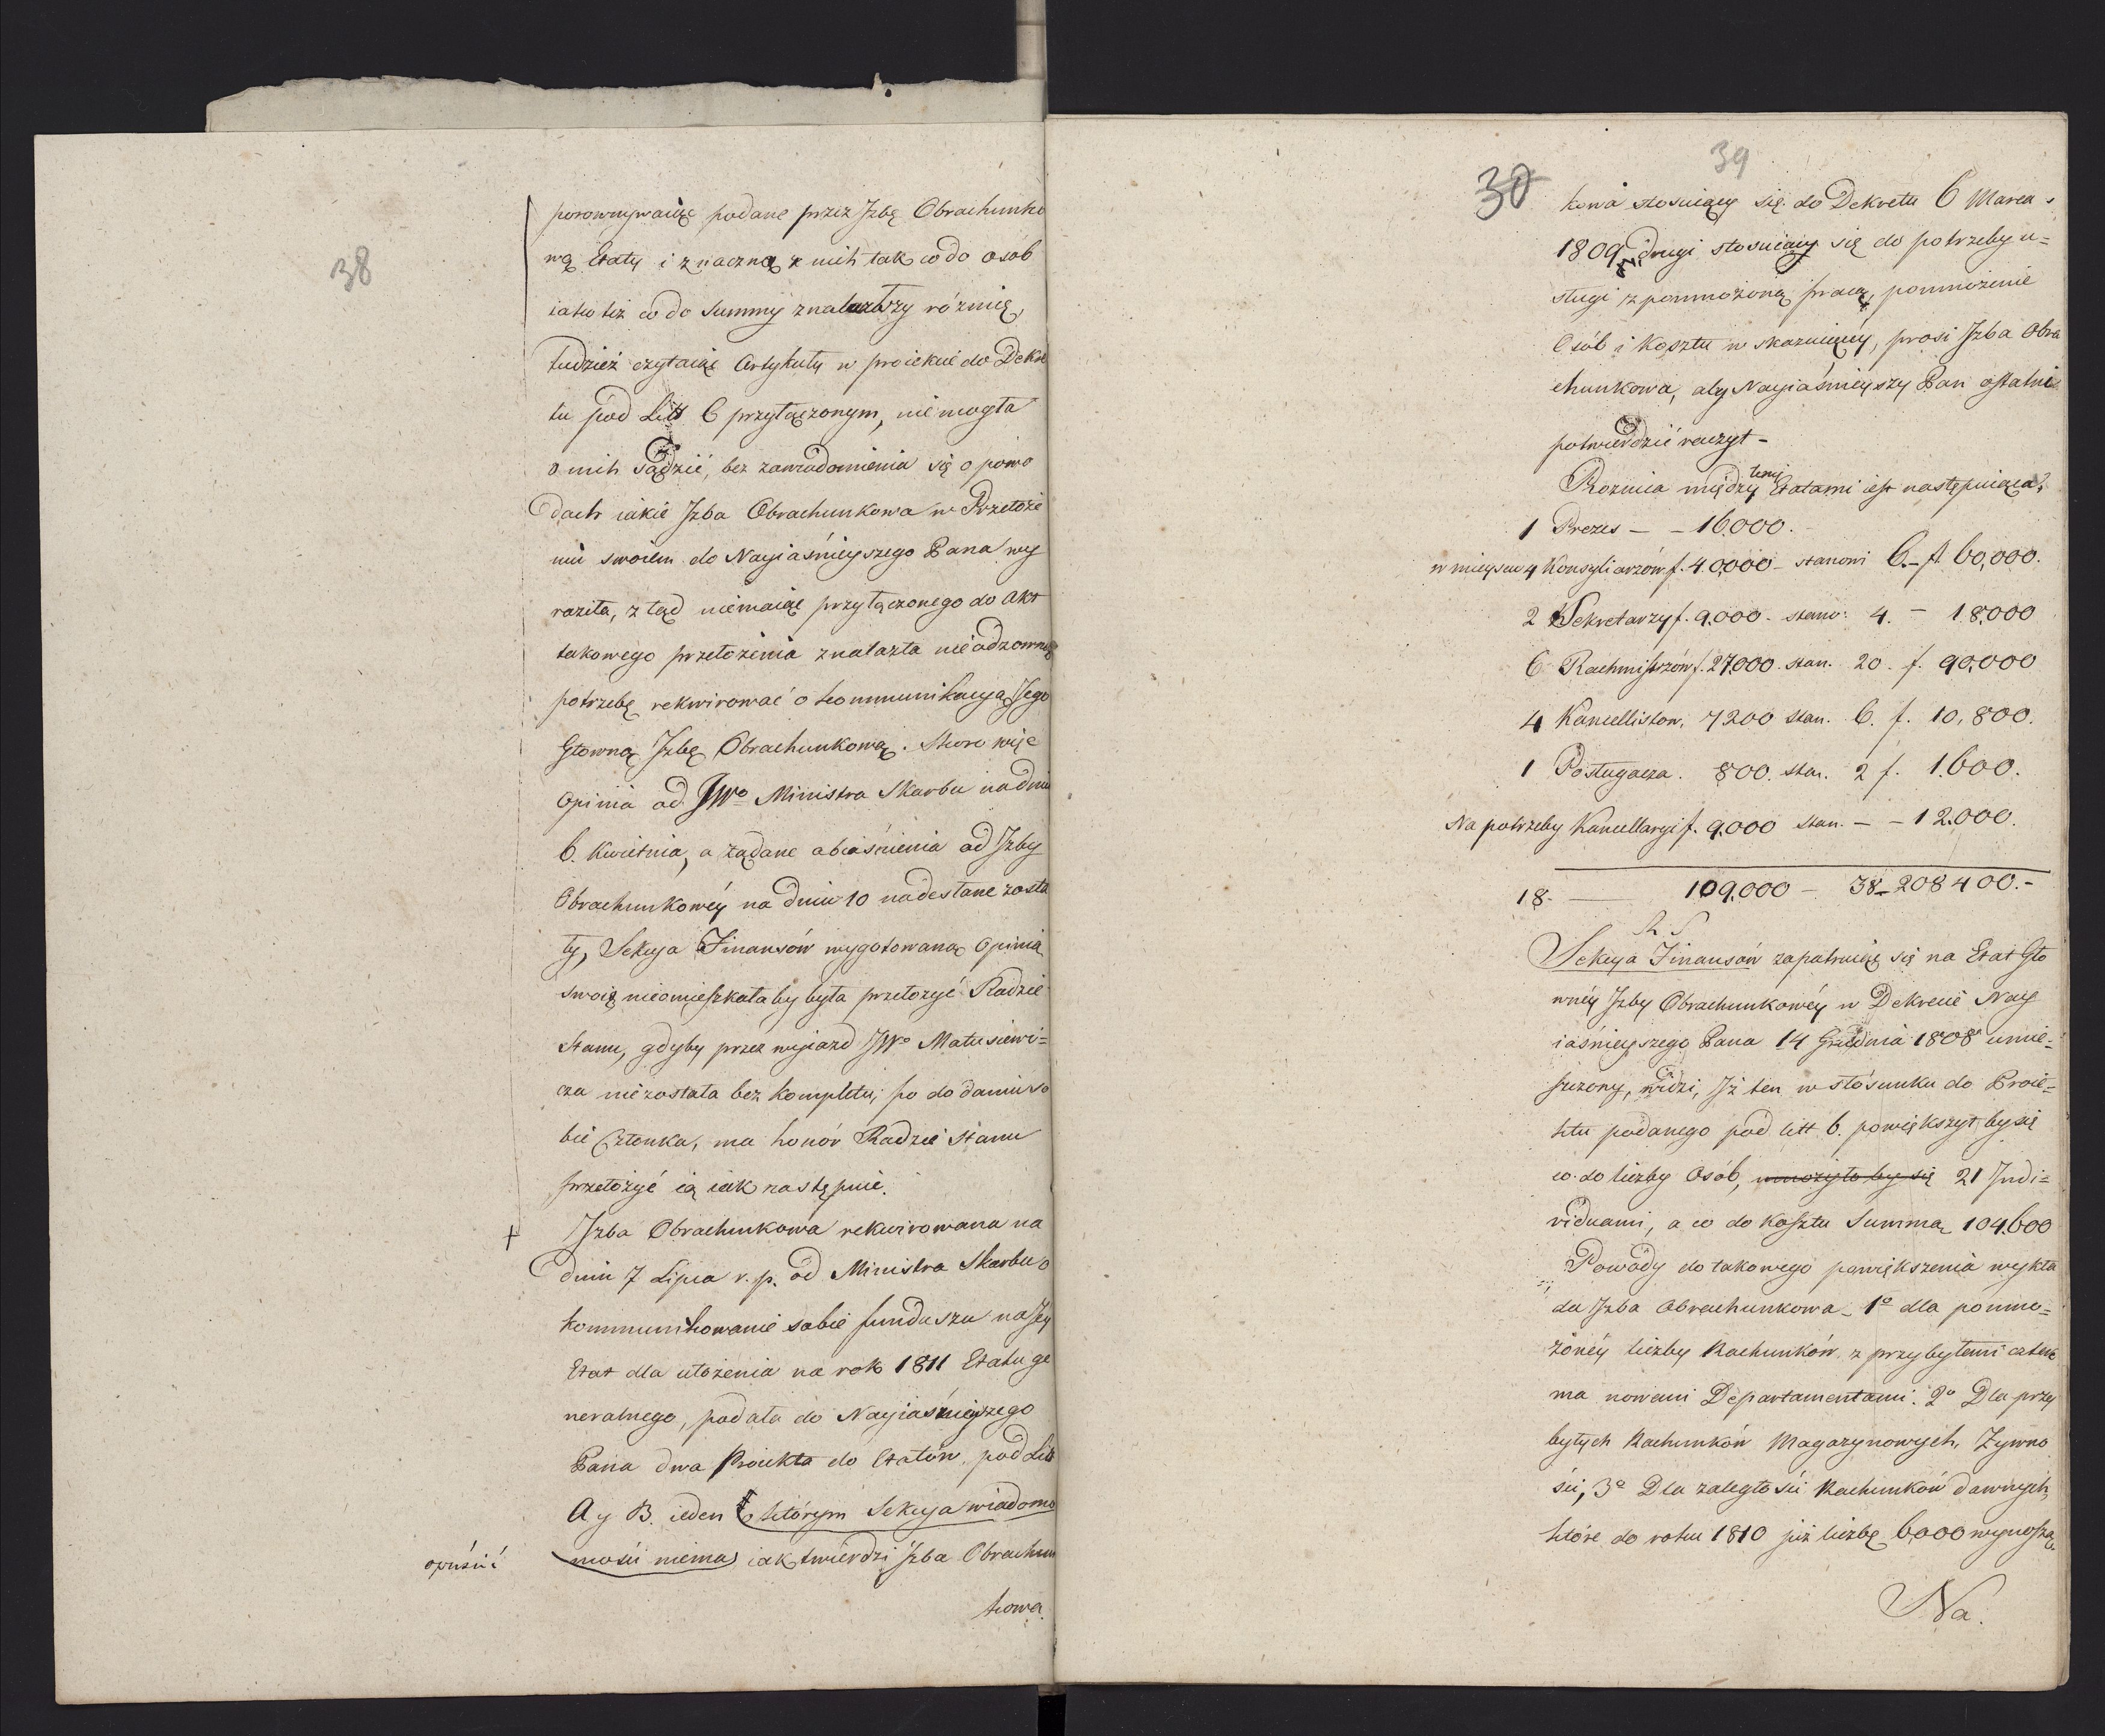 38
porownywaiąc podane przez Izbę Obrachunko
wą Etaty i znaczną z nich tak co do osób
iako też co do Summy znalazłszy różnię,
tudzież czytaiąc Artykuły w proiekcie do Dekre
tu pod Litt C przyłączonym, nie mogła
o nich sądzić, bez zawiadomienia się o powo
dach iakie Izba Obrachunkowa w Przełoże
niu swoiem do Nayiaśnieyszego Pana wy
raziła, z tąd niemaiąc przyłączonego do Akt
takowego przełożenia znalazła nieodzowną
potrzebę rekwirować o kommunikacyą Jego
Głowną Izbę Obrachunkową. Skoro więc
Opinia od JWo Ministra Skarbu na dniu
6. Kwietnia, a żądane obiaśnienia od Izby
Obrachunkowéy na dniu 10 nadesłane zosta
ły, Sekcya Finansów wygotowaną Opinią
swoią nieomieszkałaby była przełożyć Radzie
Stanu, gdyby przez wyiazd JWo Matusiewi=
cza nie została bez kompletu; po dodaniu so
bie Członka, ma honór Radzie Stanu
przełożyć ią iak następuie.
+ Izba Obrachunkowa rekwirowana na
dniu 7 Lipca r. p. od Ministra Skarbu o
kommunikowanie sobie funduszu na Jéy
Etat dla ułożenia na rok 1811 Etatu ge
neralnego, podała do Nayiaśnieyszego
Pana dwa Proiekta do Etatów pod Litt
A y B. ieden o którym Sekcya wiadomo
opuścić mości niema iak twierdzi Izba Obrachun
kowa.
39
30 kowa stosuiący się do Dekretu 6 Marca
1809 drugi stosuiący się do potrzeby u=
sługi z pomnożoną pracą, pomnożenie
Osób i kosztu wskazuiący, prosi Izba Obra
chunkowa, aby Nayiaśnieyszy Pan ostatni
potwierdzić raczył -
temi
Roznica między Etatami iest następuiąca,
1 Prezes - - 16000.
w mieyscu 4 Konsyliarzów f. 40,000 - stanowi 6. - f 60,000.
2 Sekretarzy f. 9.000 - stano: 4. - 18,000
6 Rachmistrzów f. 27,000. stan. 20. f. 90,000
4 Kancellistow, 7200 stan. 6. f. 10,800.
1 Posługacza. 800. stan. 2 f. 1.600.
Na potrzeby Kancellaryi f. 9.000 stan. - - 12.000.
18. - 109,000 - 38 - 208400. -
Sekcya Finansów zapatruiąc się na Etat Gło
wnéy Izby Obrachunkowéy w Dekrecie Nay
iaśnieyszego Pana 14 Grudnia 1808 umie=
szczony, widzi, Iż ten w stosunku do Proie=
ktu podanego pod litt b. powiększył by się
co do liczby Osób, umożyło by się 21 Indi=
viduami, a co do kosztu Summą 104,600
Powody do takowego powiększenia wykła
da Izba Obrachunkowa - 1o dla pomno=
żonéy liczby Rachunków z przybyłemi czterę
ma nowemi Departamentami. 2o Dla przy
byłych Rachunków Magazynowych, Żywno
ści, 3o Dla zaległości Rachunków dawnych,
które do roku 1810 już liczbę 6,000 wynoszą.
Na.